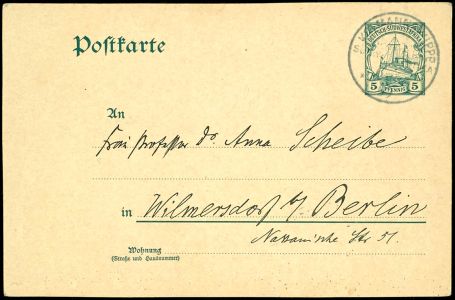 Postkarte
DEUTSCH-SÜDWESTAFRIKA
5 PFENNIG 5
An
Frau Professor Dr. Anna Scheibe
in Wilmersdorf b/ Berlin
Nassauische Str. 51.
Wohnung
(Straße und Hausnummer)